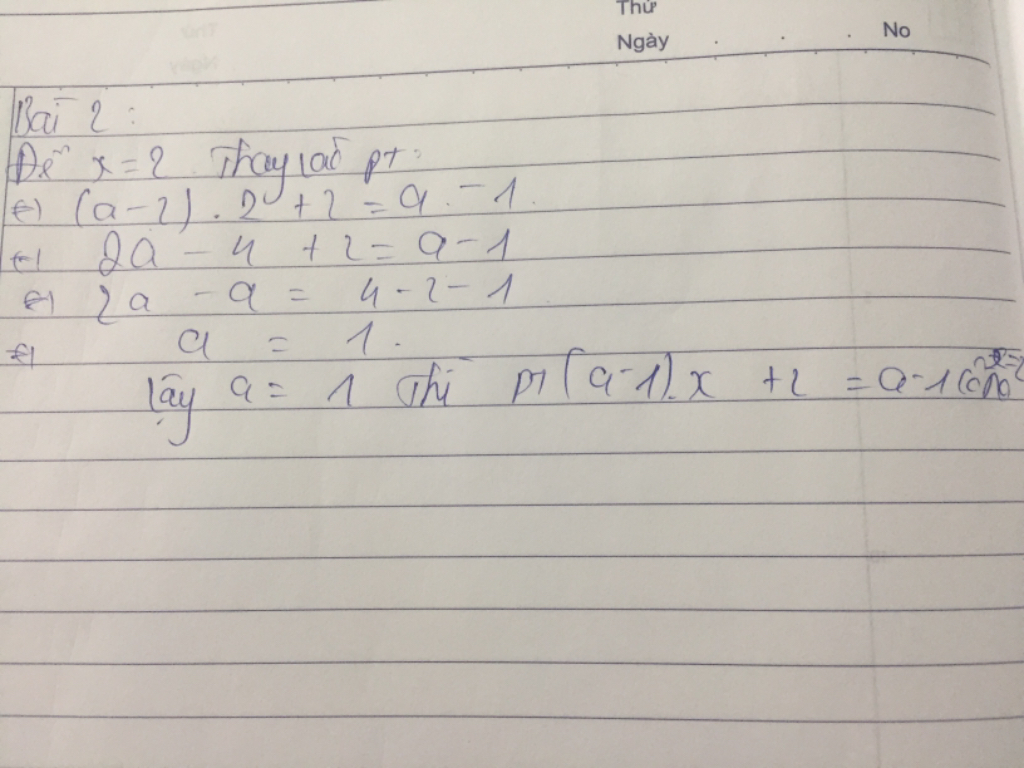 Thứ
Ngày . . . No
Bài 2 :
Để x = 2 Thay vào pt :
<=> (a-2) . 2 + 2 = a - 1.
<=> 2a - 4 + 2 = a - 1
<=> 2a - a = 4 - 2 - 1
<=> a = 1.
Vậy a = 1 Thì pt (a-1).x + 2 = a-1 có no x=2